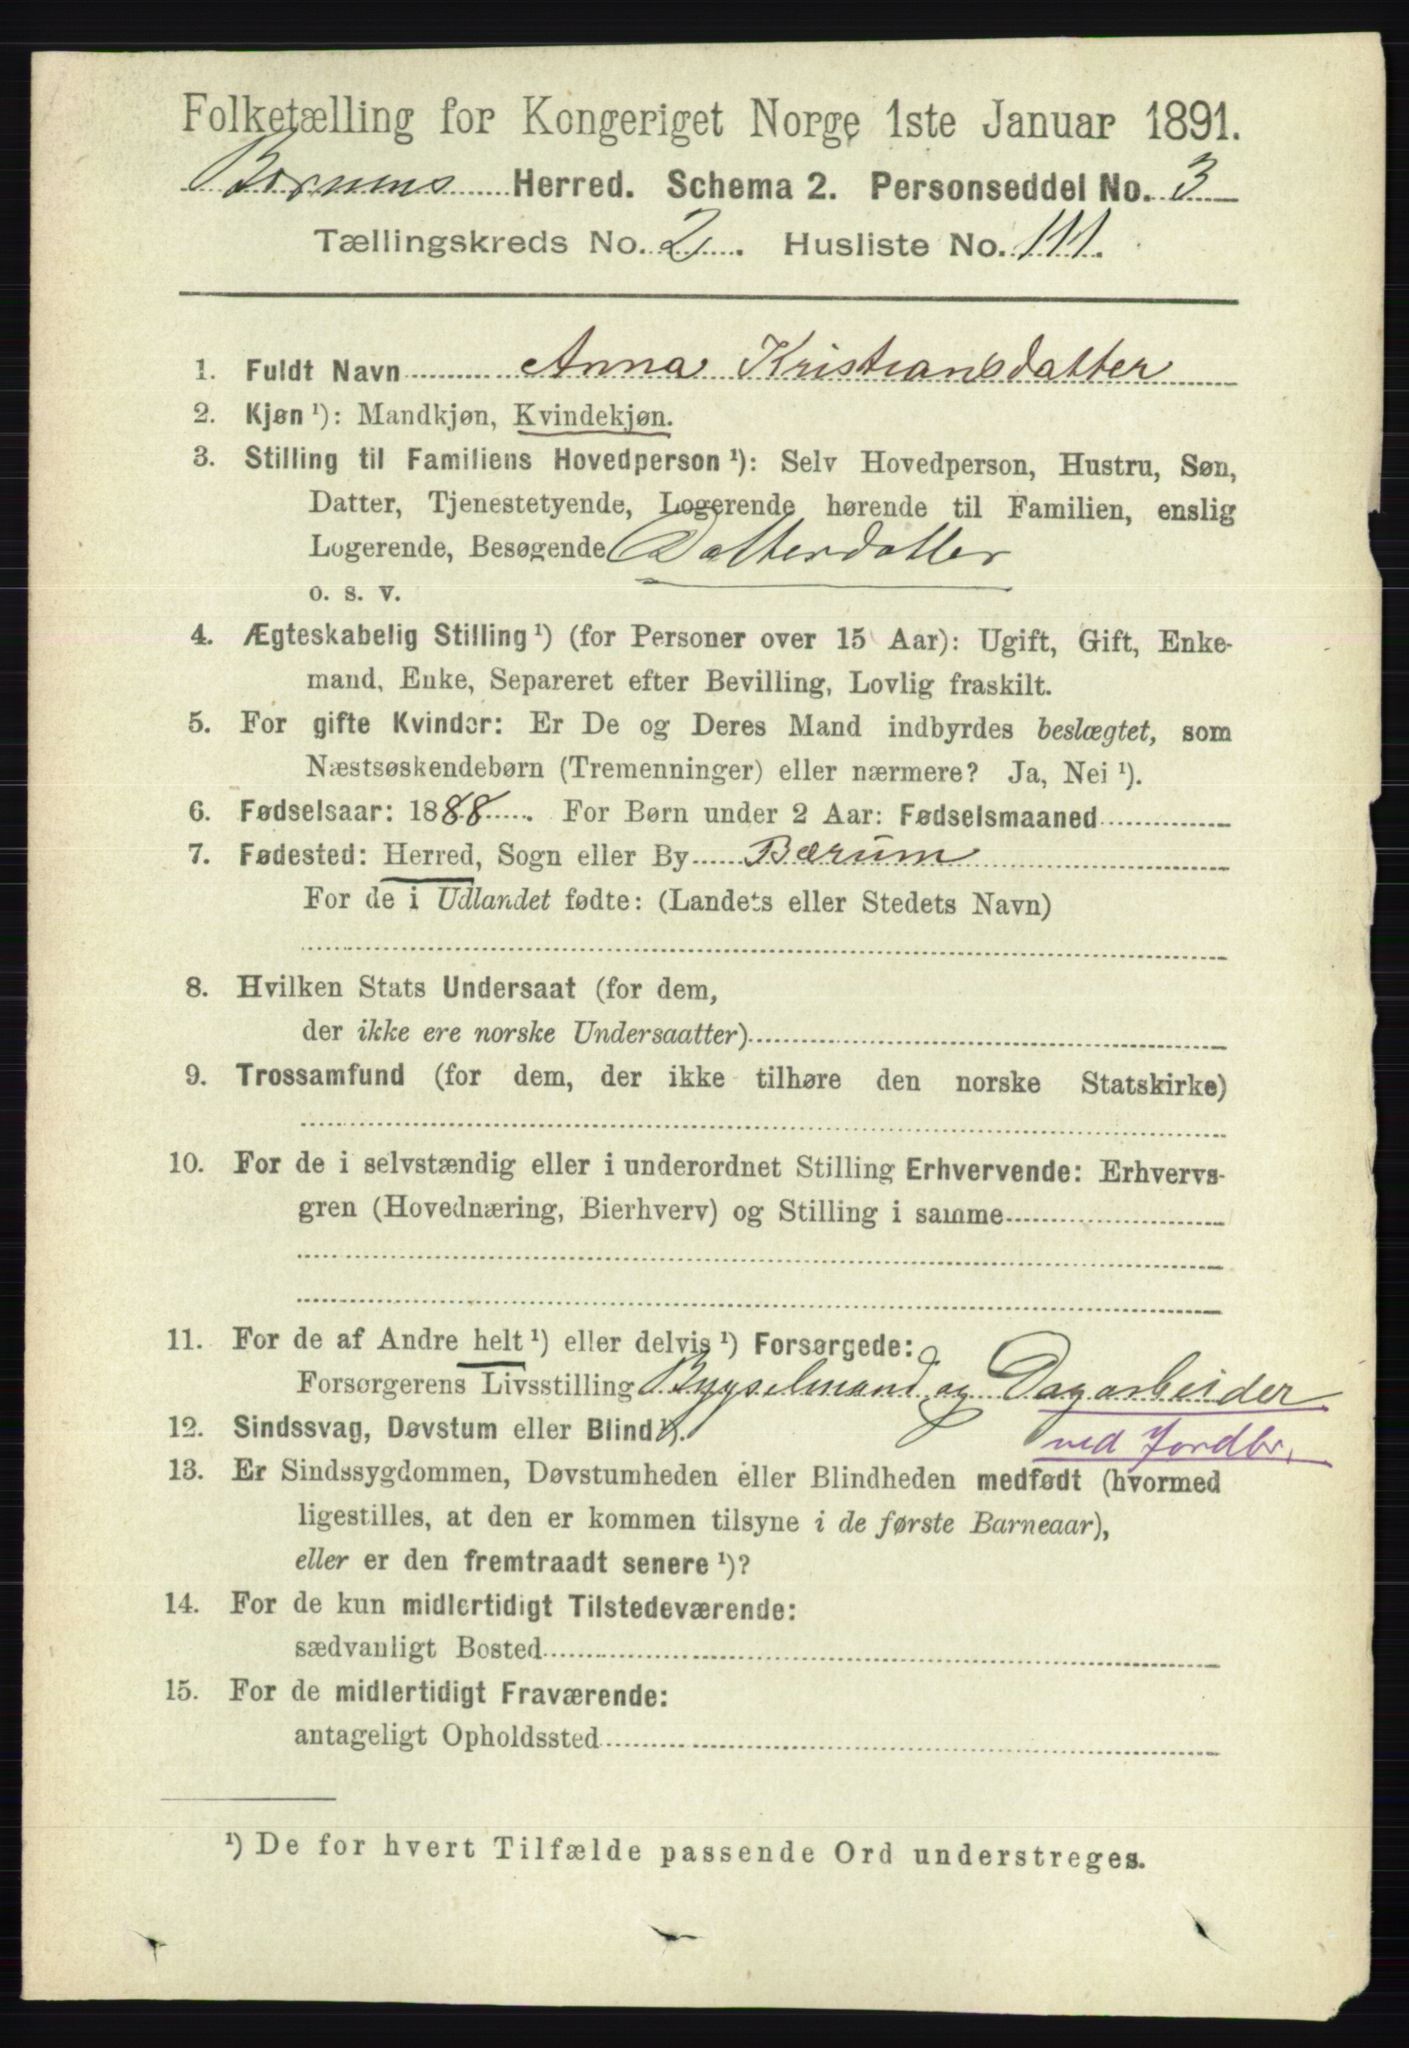 Folketælling for Kongeriget Norge 1ste Januar 1891.
Bærums Herred. Schema 2. Personseddel No. 3
Tællingskreds No. 2. Husliste No. 111.
1. Fuldt Navn Anna Kristiansdatter
2. Kjøn ¹): Mandkjøn, Kvindekjøn.
3. Stilling til Familiens Hovedperson ¹): Selv Hovedperson, Hustru, Søn,
Datter, Tjenestetyende, Logerende hørende til Familien, enslig
Logerende, Besøgende Datterdatter
o. s. v.
4. Ægteskabelig Stilling ¹) (for Personer over 15 Aar): Ugift, Gift, Enke-
mand, Enke, Separeret efter Bevilling, Lovlig fraskilt.
5. For gifte Kvinder: Er De og Deres Mand indbyrdes beslægtet, som
Næstsøskendebørn (Tremenninger) eller nærmere? Ja, Nei ¹).
6. Fødselsaar: 1888. For Børn under 2 Aar: Fødselsmaaned
7. Fødested: Herred, Sogn eller By Bærum
For de i Udlandet fødte: (Landets eller Stedets Navn)
8. Hvilken Stats Undersaat (for dem,
der ikke ere norske Undersaatter)
9. Trossamfund (for dem, der ikke tilhøre den norske Statskirke)
10. For de i selvstændig eller i underordnet Stilling Erhvervende: Erhvervs-
gren (Hovednæring, Bierhverv) og Stilling i samme
11. For de af Andre helt ¹) eller delvis ¹) Forsørgede:
Forsørgerens Livsstilling Bygselmand og Dagarbeider
12. Sindssvag, Døvstum eller Blind ¹). ved Jordbr.
13. Er Sindssygdommen, Døvstumheden eller Blindheden medfødt (hvormed
ligestilles, at den er kommen tilsyne i de første Barneaar),
eller er den fremtraadt senere ¹)?
14. For de kun midlertidigt Tilstedeværende:
sædvanligt Bosted
15. For de midlertidigt Fraværende:
antageligt Opholdssted
¹) De for hvert Tilfælde passende Ord understreges.